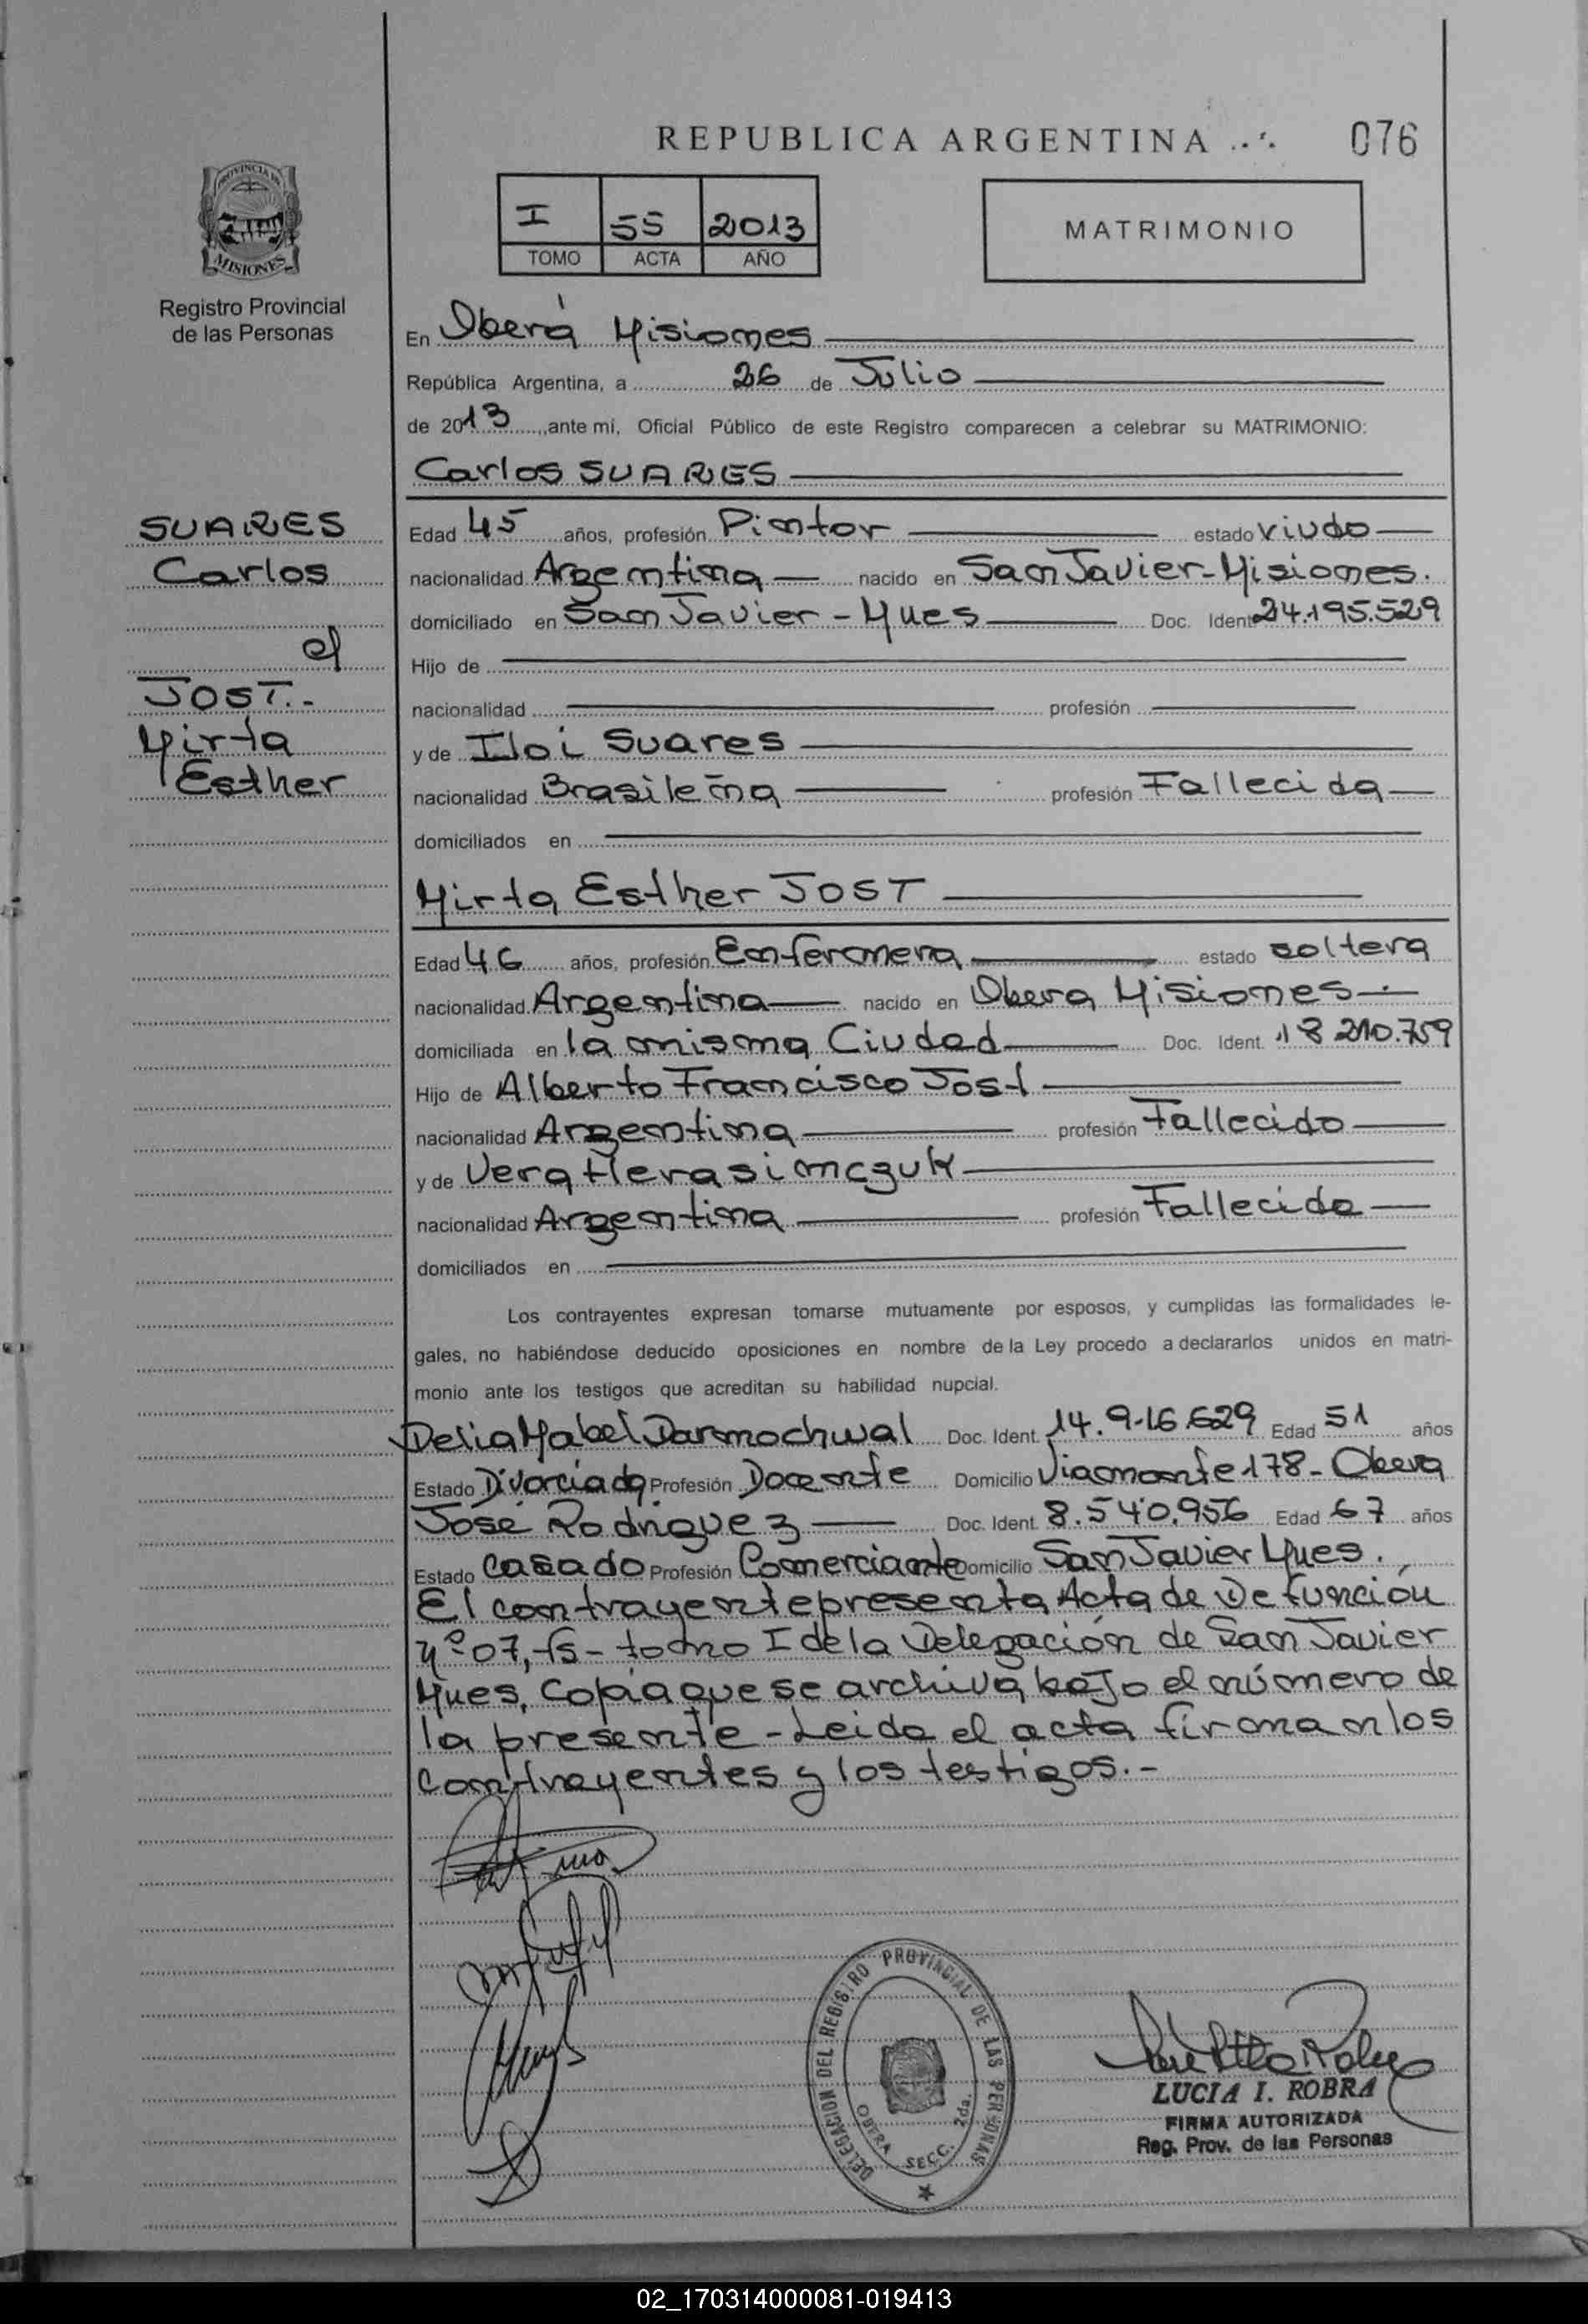 REPUBLICA ARGENTINA
076
PROVINCIA DE
MISIONES
Registro Provincial
de las Personas
I 55 2013
TOMO ACTA AÑO
MATRIMONIO
En Oberá Misiones
República Argentina, a 26 de Julio
de 2013, ante mí, Oficial Público de este Registro comparecen a celebrar su MATRIMONIO:
Carlos SUARES
SUARES
Carlos
c/
JOST.-
Mirta
Esther
Edad 45 años, profesión Pintor estado viudo
nacionalidad Argentina nacido en San Javier-Misiones.
domiciliado en San Javier - Mnes Doc. Ident 24.195.529
Hijo de
nacionalidad profesión
y de Iloi Suares
nacionalidad Brasileña profesión Fallecida
domiciliados en
Mirta Esther JOST
Edad 46 años, profesión Enfermera estado soltera
nacionalidad Argentina nacido en Obera Misiones
domiciliada en la misma Ciudad Doc. Ident. 18 210.759
Hijo de Alberto Francisco Jost
nacionalidad Argentina profesión Fallecido
y de Vera Herasimczuk
nacionalidad Argentina profesión Fallecida
domiciliados en
Los contrayentes expresan tomarse mutuamente por esposos, y cumplidas las formalidades le-
gales, no habiéndose deducido oposiciones en nombre de la Ley procedo a declararlos unidos en matri-
monio ante los testigos que acreditan su habilidad nupcial.
Delia Mabel Darmochwal Doc. Ident. 14.916.629 Edad 51 años
Estado Divorciada Profesión Docente Domicilio Viamonte 178- Obera
José Rodriguez Doc. Ident. 8.540.956 Edad 67 años
Estado Casado Profesión Comerciante Domicilio San Javier Mnes.
El contrayente presenta Acta de Defunción
Nº 07, tomo I de la Delegación de San Javier
Mnes, Copia que se archiva bajo el número de
la presente - Leida el acta firman los
contrayentes y los testigos.-
DELEGACION DEL REGISTRO PROVINCIAL DE LAS PERSONAS
OBERA SECC. 2da.
LUCIA I. ROBRA
FIRMA AUTORIZADA
Reg. Prov. de las Personas
02_170314000081-019413